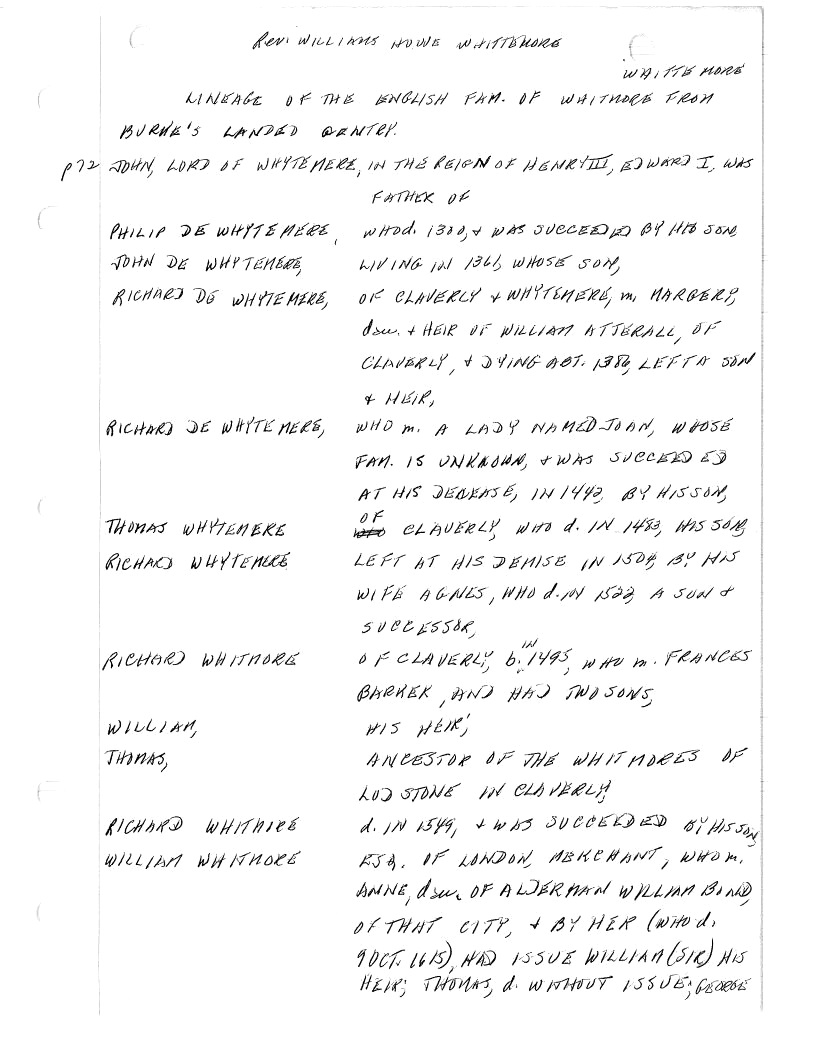 Rev. WILLIAMS HOWE WHITTEMORE
WHITTEMORE
LINEAGE OF THE ENGLISH FAM. OF WHITMORE FROM
BURKE'S LANDED GENTRY.
p72 JOHN, LORD OF WHYTEMERE, IN THE REIGN OF HENRY III, EDWARD I, WAS
FATHER OF
PHILIP DE WHYTEMERE, WHO d. 1300, & WAS SUCCEEDED BY HIS SON,
JOHN DE WHYTEMERE, LIVING IN 1361, WHOSE SON,
RICHARD DE WHYTEMERE, OF CLAVERLY & WHYTEMERE, m. MARGERY,
dau. & HEIR OF WILLIAM ATTERALL, OF
CLAVERLY, & DYING ABT. 1386, LEFT A SON
& HEIR,
RICHARD DE WHYTEMERE, WHO m. A LADY NAMED JOAN, WHOSE
FAM. IS UNKNOWN, & WAS SUCCEEDED
AT HIS DECEASE, IN 1442, BY HIS SON,
THOMAS WHYTEMERE OF CLAVERLY, WHO d. IN 1483, HIS SON,
RICHARD WHYTEMERE LEFT AT HIS DEMISE IN 1504, BY HIS
WIFE AGNES, WHO d. IN 1522, A SON &
SUCCESSOR,
RICHARD WHITMORE OF CLAVERLY, b. IN 1495, WHO m. FRANCES
BARKER, AND HAD TWO SONS,
WILLIAM, HIS HEIR;
THOMAS, ANCESTOR OF THE WHITMORES OF
LUDSTONE IN CLAVERLY,
RICHARD WHITMIRE d. IN 1549, & WAS SUCCEEDED BY HIS SON,
WILLIAM WHITMORE ESQ. OF LONDON, MERCHANT, WHO m.
ANNE, dau. OF ALDERMAN WILLIAM BOND,
OF THAT CITY, & BY HER (WHO d.
9 OCT. 1615), HAD ISSUE WILLIAM (SIR) HIS
HEIR; THOMAS, d. WITHOUT ISSUE; GEORGE